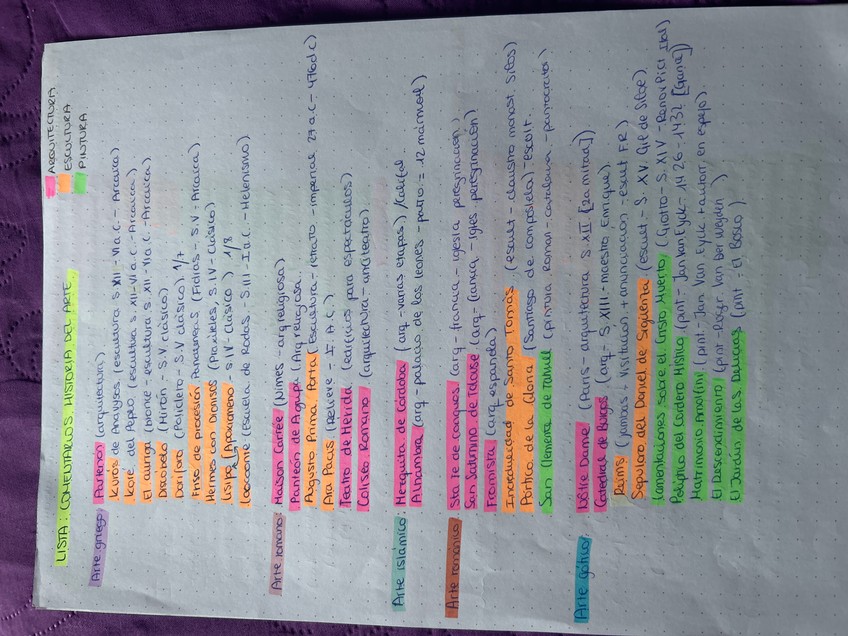 ARQUITECTURA
ESCULTURA
PINTURA
LISTA: COMENTARIOS HISTORIA DEL ARTE
Arte griego: Partenon (arquitectura)
Kuros de Anavysos (escultura s XII - VI a.C. - Arcaica)
Koré del Peplo (escultura s. XII - VI a.C. - Arcaica)
El auriga (bronce - escultura s. XII - VI a.C. - Arcaica)
Discóbolo (Mirón - S.V clásico)
Doriforo (Policleto - S.V clásico) 1/7
Friso de procesión Panateneas (Fidias - S.V - Arcaica)
Hermes con Dionisos (Praxiteles, S.IV - clásico)
Lisipo (Apoxiomeno - S IV - clásico) 1/8
Laocoonte (Escuela de Rodas - S.III - I a.C. - Helenismo)
Arte romano: Maison Carrée (Nimes - arq religiosa)
Panteón de Agripa (Arq religiosa)
Augusto Prima Porta (Escultura - retrato - imperial 27 a.C - 476 d.C)
Ara Pacis (Relieve - I. A.C.)
Teatro de Mérida (edificios para espectáculos)
Coliseo Romano (arquitectura - anfiteatro)
Arte islámico: Mezquita de Córdoba (arq - varias etapas) / califal.
Alhambra (arq - palacio de los leones - patio = 12 mármol)
Arte románico: Sta Fe de Conques (arq - francia - iglesia peregrinación)
San Saturnino de Tolouse (arq - francia - igles peregrinación)
Fromista (arq española)
Incredulidad de Santo Tomás (escult - claustro monast. Silos)
Pórtico de la Gloria (Santiago de compostela) - escult.
San Clemente de Tahull (pintura Roman - catalana - pantocrator)
Arte gótico: Nôtre Dame (Paris - arquitectura S. XII [2a mitad])
Catedral de Burgos (arq - S. XIII - maestro Enrique)
Reims (jambas, visitación + anunciación - escult FR)
Sepulcro del Doncel de Sigüenza (escult - S. XV. Gil de Siloé)
Lamentaciones sobre el Cristo Muerto (Giotto - S. XIV
Políptico del Cordero Místico (pint - Jan Van Eyck - 1426 - 1432 [Gante])
Matrimonio Arnolfini (pint - Jan Van Eyck + autorr. en espejo)
El Descendimiento (pint - Roger Van Der Weyden)
El Jardín de las Delicias (pint: El Bosco).